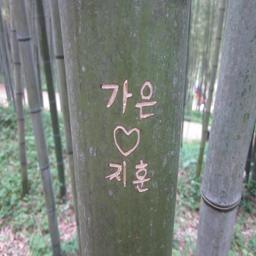 가은
♡
지훈